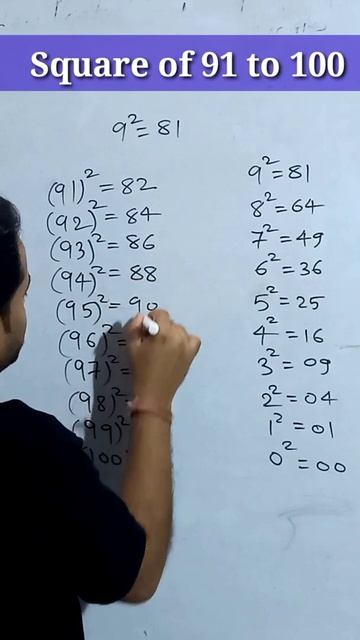 Square of 91 to 100
9² = 81
(91)² = 82
(92)² = 84
(93)² = 86
(94)² = 88
(95)² = 90
(96)² =
(97)² =
(98)²
(99)²
100
9² = 81
8² = 64
7² = 49
6² = 36
5² = 25
4² = 16
3² = 09
2² = 04
1² = 01
0² = 00